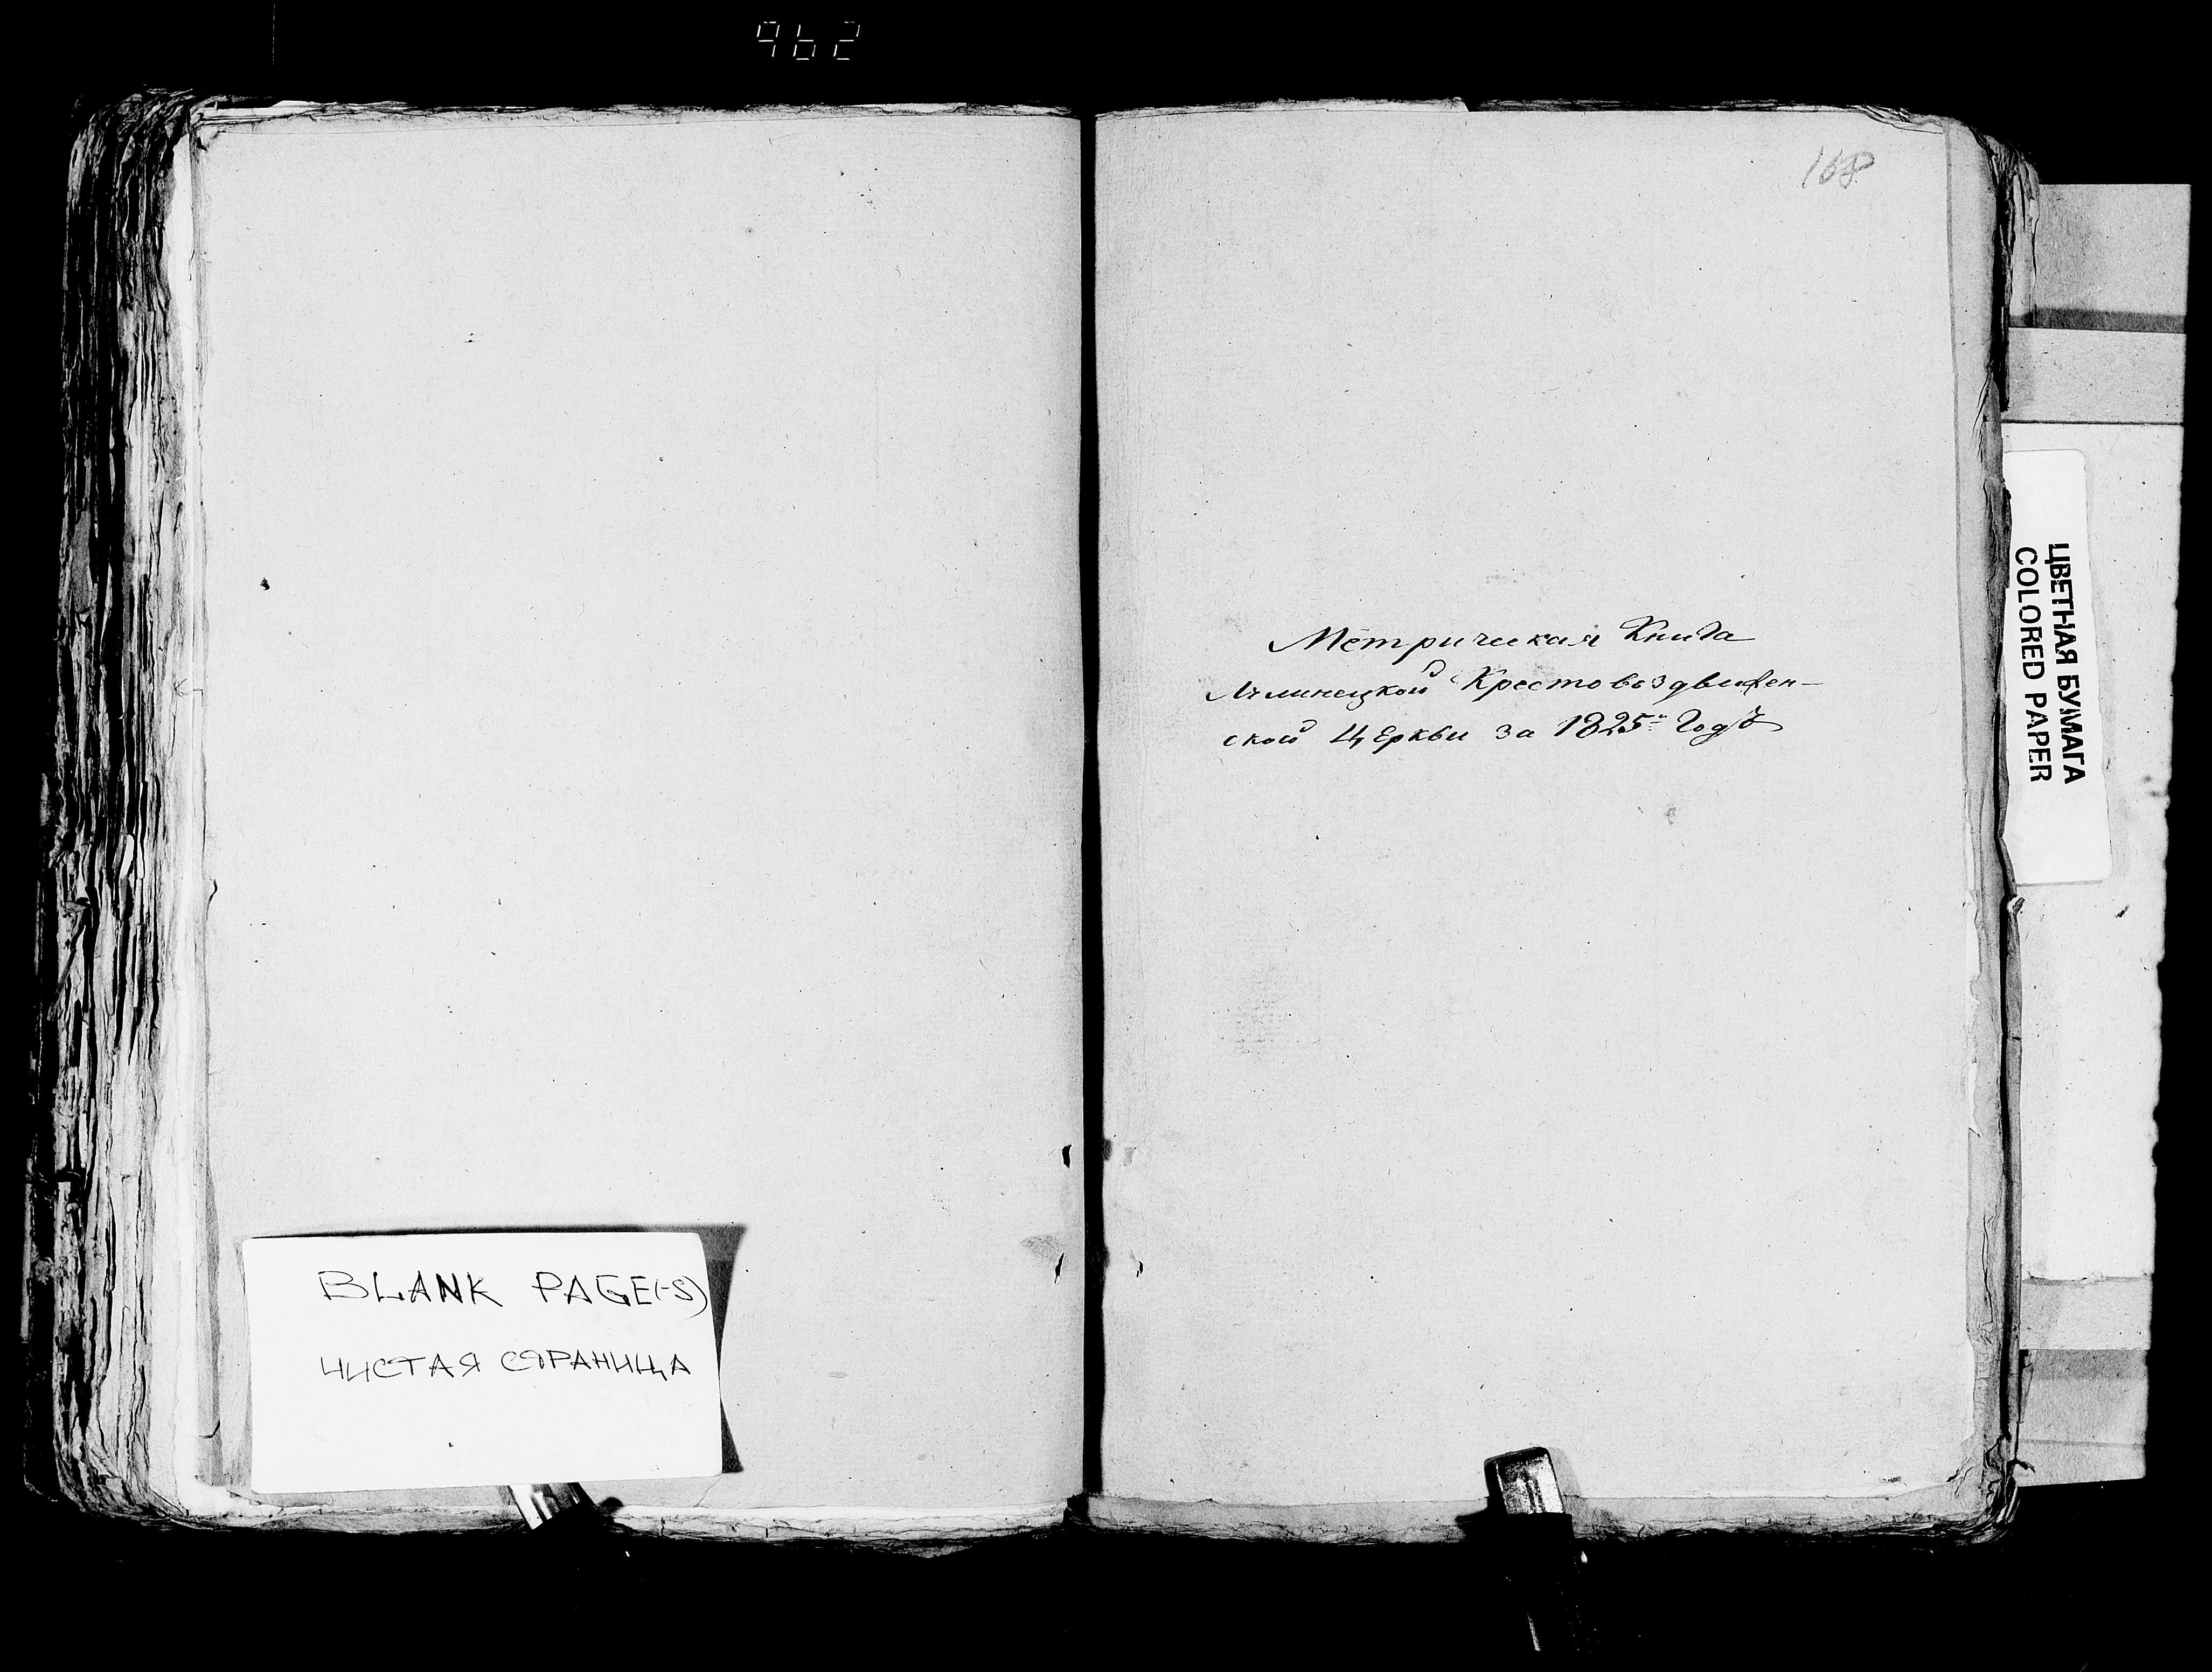 962
168
Метрическая Книга
Крестовоздвижен-
ской Церкви за 1825й Годъ
ЦВЕТНАЯ БУМАГА
COLORED PAPER
BLANK PAGE(-S)
ЧИСТАЯ СТРАНИЦА